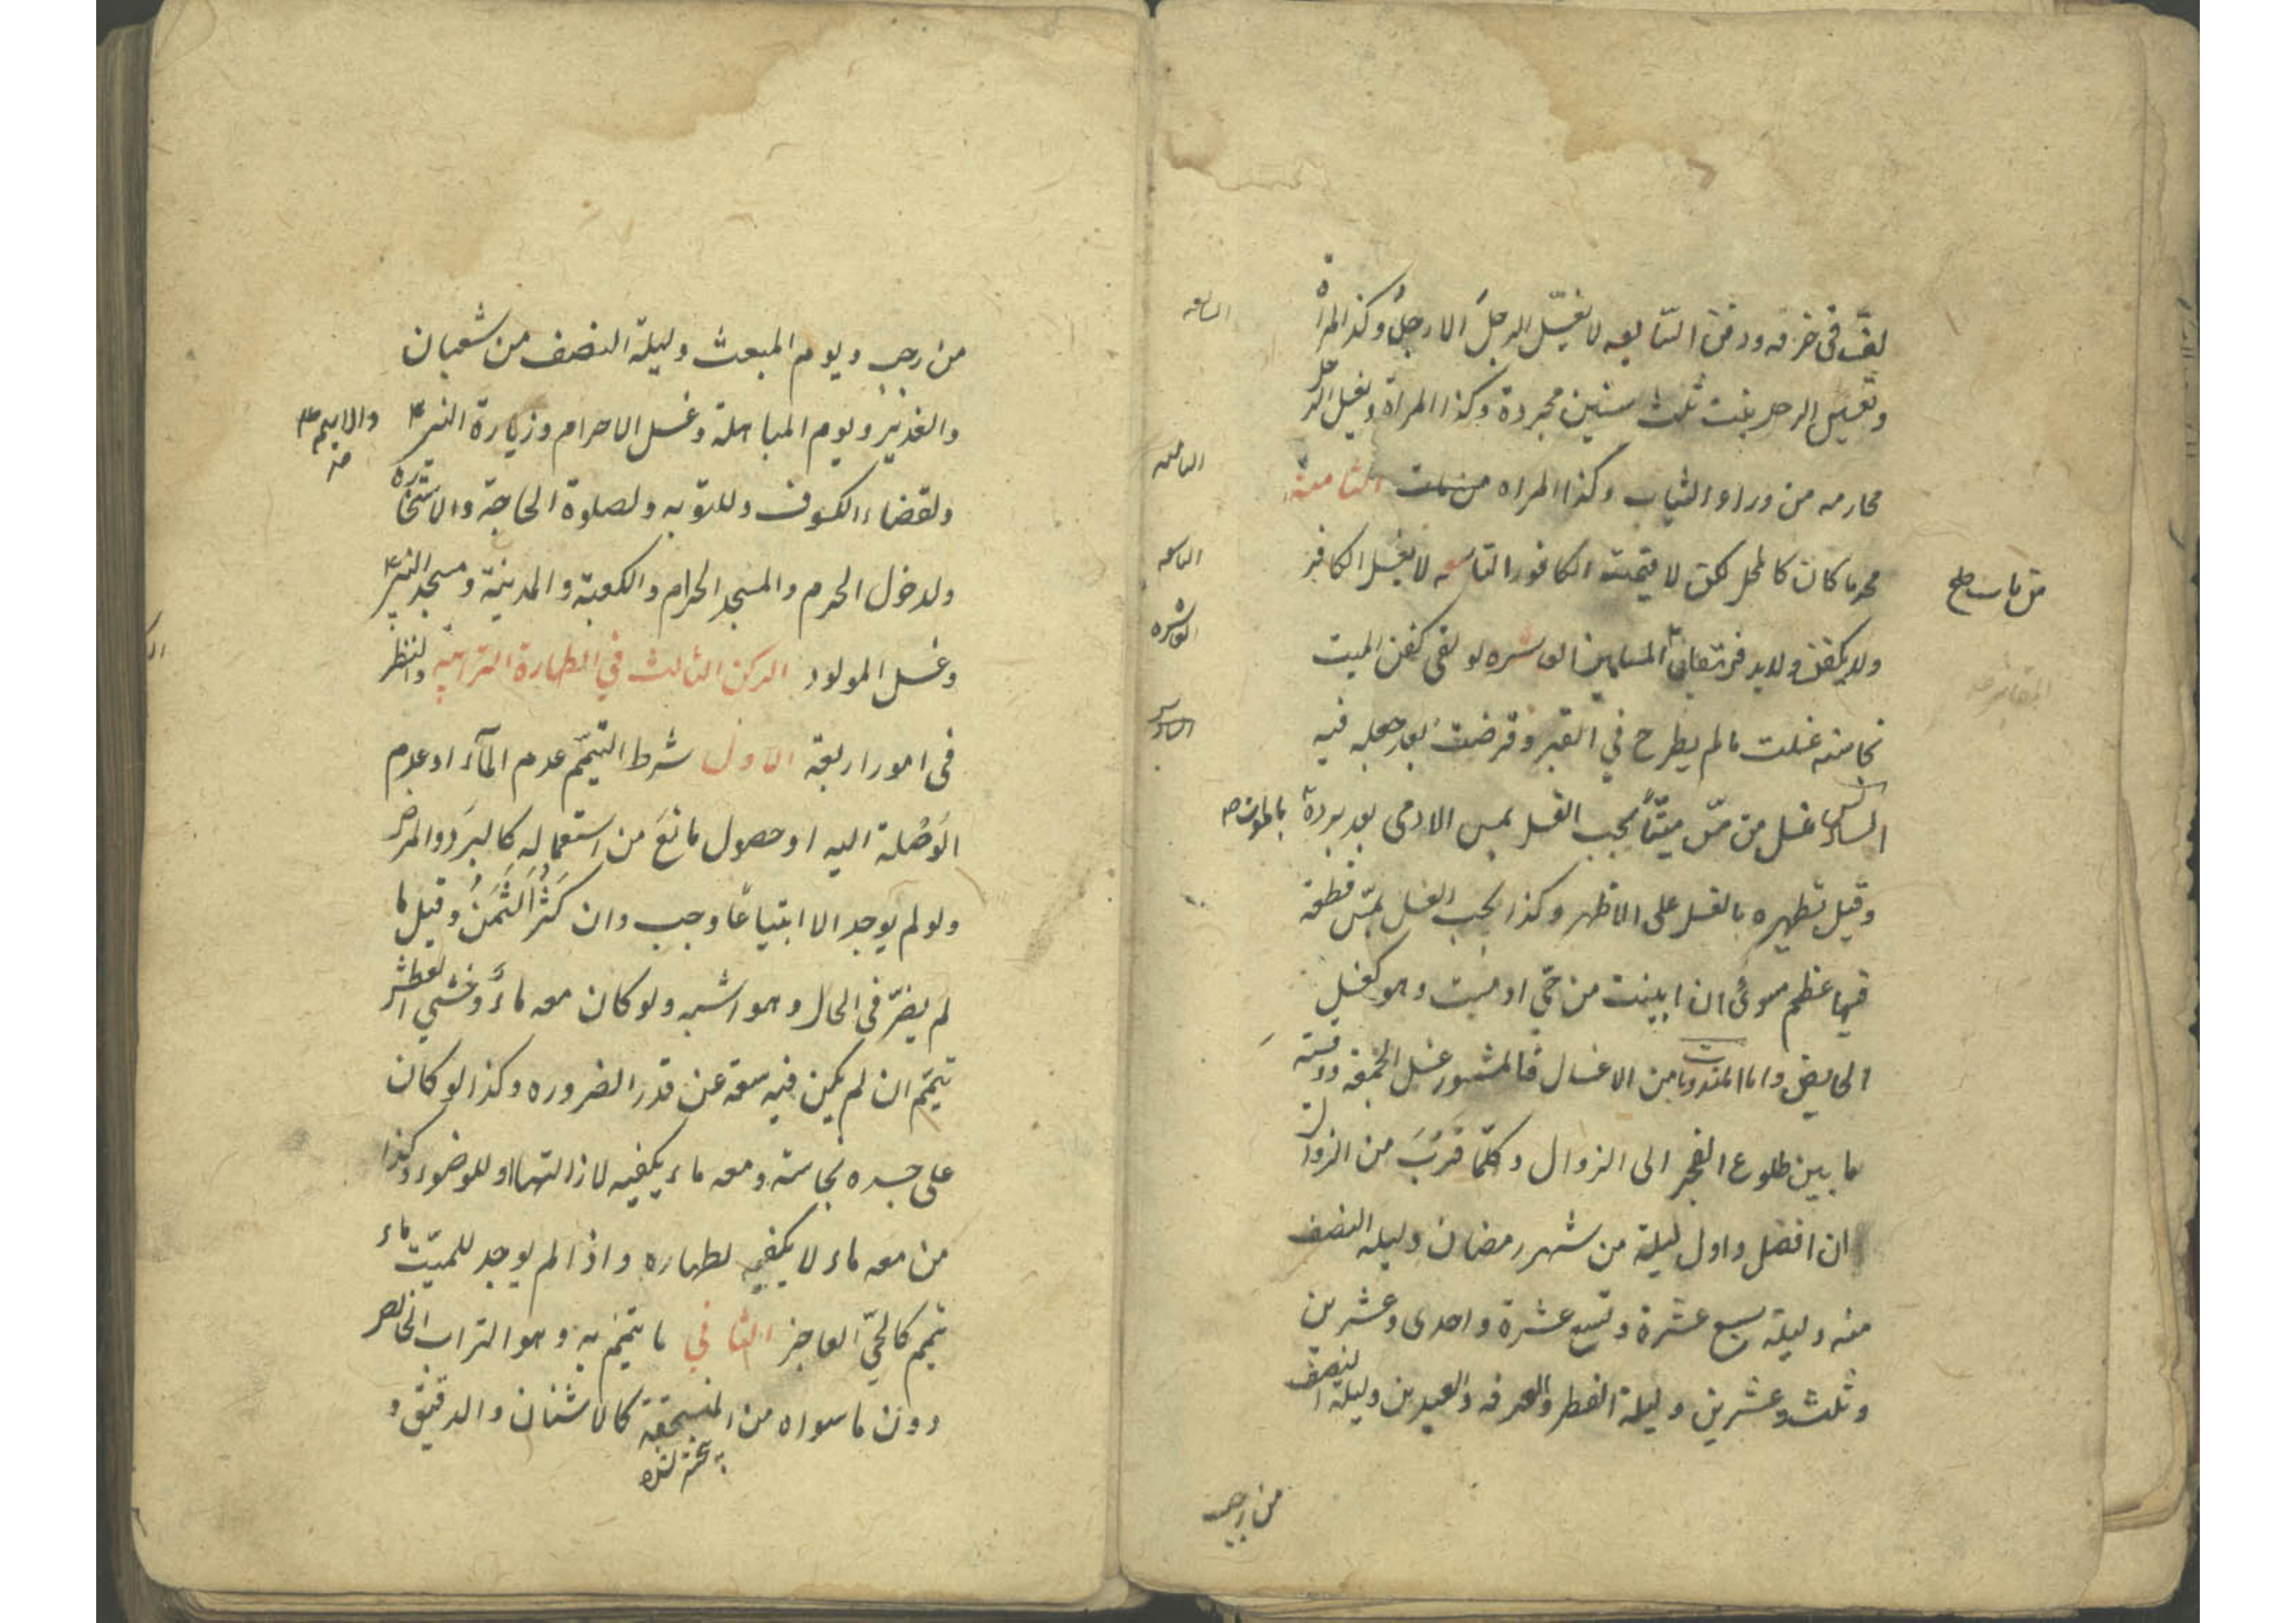 السابعة
لف في خرقه ودفن السّابعه لا يغسّل الرجلَ الا رجلٌ وكذا المراة
وتغسيل الرجل بنت ثلث سنين مجردة وكذا المراة ويغسل الرجل
الثامنه
محارمه من وراء الثياب وكذا المراه من مات الثامنة
من مات صح
محرما كان كالمحل لكن لا يقربه الكافور التاسعه لا يغسل الكافر
التاسعه
ولا يكفن ولا يدفن في مقابر المسلمين العاشره لو لقى كفن الميت
العاشره
المقابر
نجاسته غسلت ما لم يطرح في القبر وقرضت بعد جعله فيه
السادس
السادس غسل من مسّ ميتّاً يجب الغسل بمس الادمى بعد برده
بالموت
وقيل تطهيره بالغسل على الاظهر وكذا يجب الغسل بمسّ قطعة
فيها عظم سواء ان ابينت من حيّ او ميت وهو كغسل
الحايض واما المندوبات من الاغسال فالمشهور غسل الجمعه ووقته
ما بين طلوع الفجر الى الزوال وكلّما قَرُبَ من الزوال
ان افضل واول ليلة من شهر رمضان وليله النصف
منه وليلة سبع عشرة وتسع عشرة واحدى وعشرين
وثلث وعشرين وليلة الفطر والعرفه والعيدين وليلة النصف
من رجب
من رجب ويوم المبعث وليلة النصف من شعبان
والغدير ويوم المباهلة وغسل الاحرام وزيارة النبي
والايمه
ولقضاء الكسوف وللتوبه ولصلوة الحاجة والاستخاره
ولدخول الحرم والمسجد الحرام والكعبة والمدينة ومسجد النبي
وغسل المولود الركن الثالث في الطهارة الترابية والنظر
في امور اربعة الاول شرط التيمّم عدم المآء او عدم
الوَصْلة اليه او حصول مانعَ من استعمالِهِ كالبرَد والمرض
ولو لم يوجد الا ابتياعًا وجب وان كَثُرَ الثَّمَنُ وقيل ما
لم يضرّ في الحال وهو اشبه ولو كان معه ماءٌ وخشي العطش
تيمّم ان لم يكن فيه سعة عن قدر الضروره وكذا لو كان
على جسده نجاسة ومعه ماء يكفيه لازالتها او للوضوء وكذا
من معه ماء لا يكفيه لطهاره واذا لم يوجد للميّت ماء
تيمم كالحيّ العاجز الثاني ما يتيمّم به وهو التراب الخالص
دون ما سواه من المنسحقة كالاشنان والدقيق و